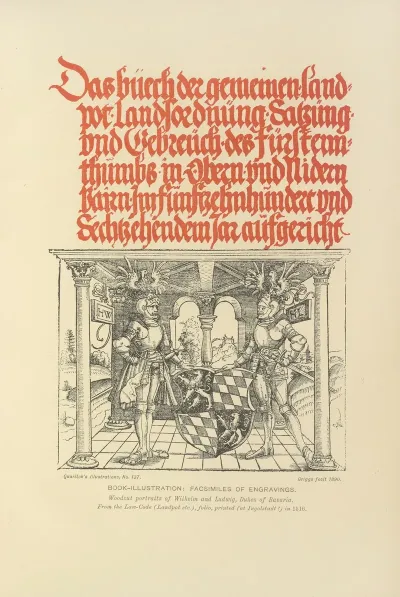 Das büech der gemeinen land-
pot. Landsordnüng. Satzüng.
vnd Gebreüch. des Fürstenn-
thumbs. in. Obern. vnd Nidern
Bairn. Im fünftzehnhündert. vnd
Sechtzehendem Jar aufgericht
HW HL
Quaritch's Illustrations, No. 127.
Griggs facit 1890.
BOOK-ILLUSTRATION: FACSIMILES OF ENGRAVINGS.
Woodcut portraits of Wilhelm and Ludwig, Dukes of Bavaria.
From the Law-Code (Landpot etc.), folio, printed (at Ingolstadt?) in 1516.